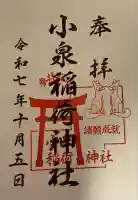 奉拝
諸願成就
小泉稲荷神社
稲荷神社
令和七年十月五日